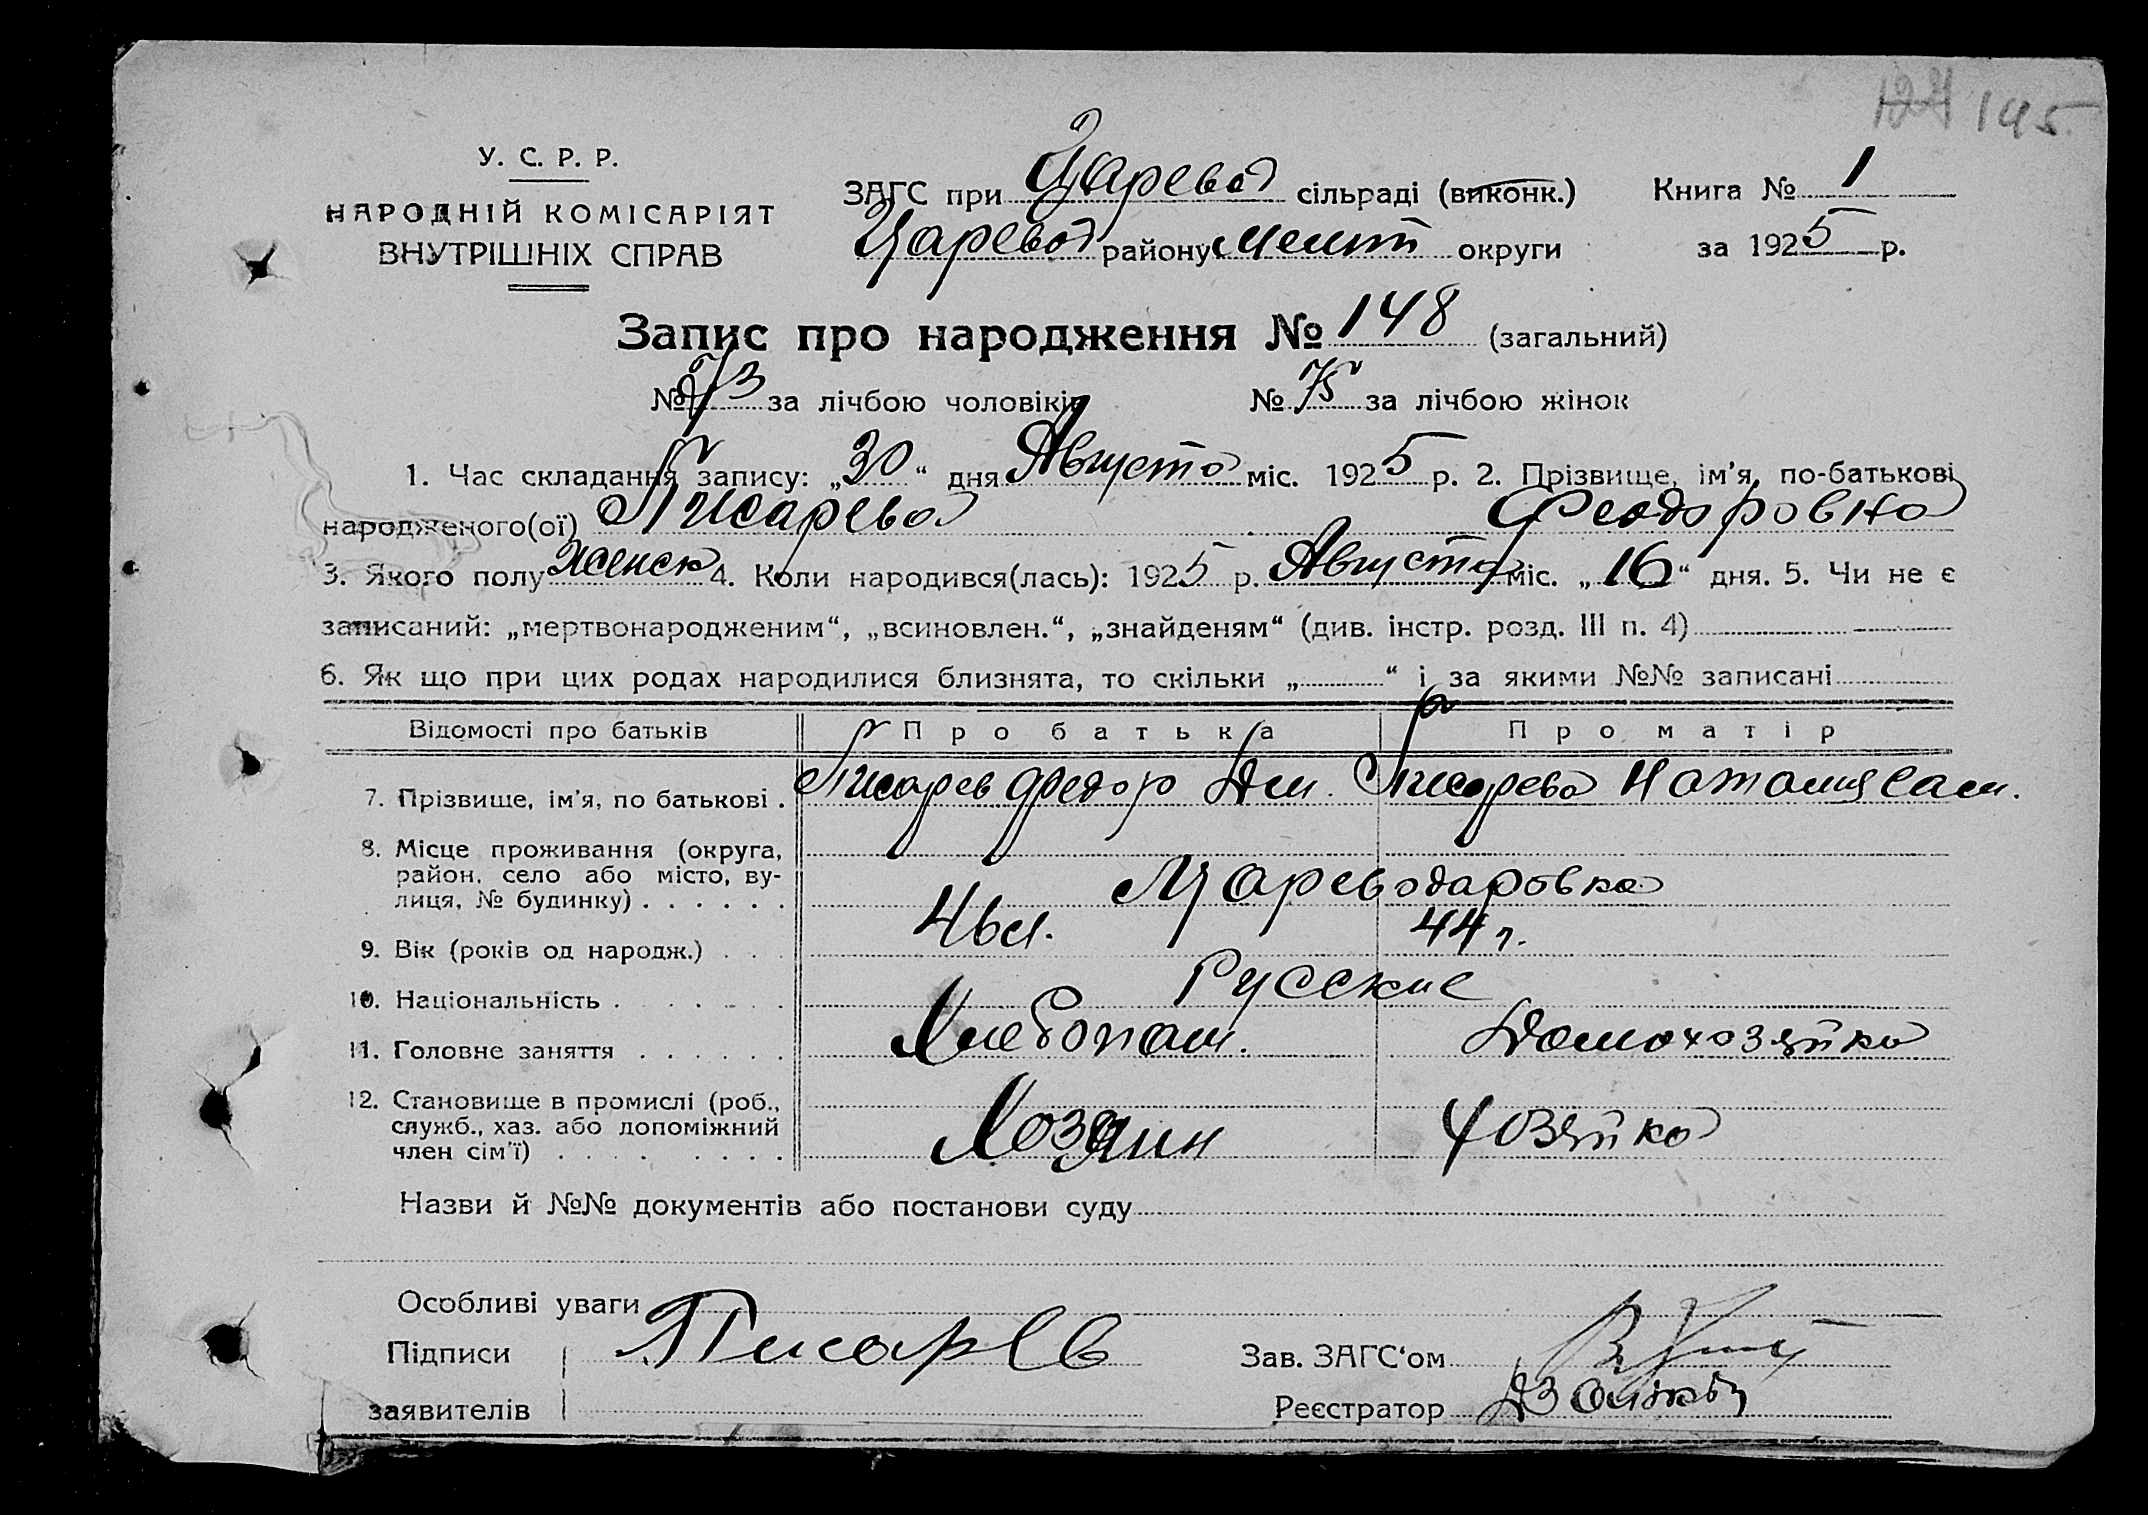 145
У. С. Р. Р.
НАРОДНІЙ КОМІСАРІЯТ
ВНУТРІШНІХ СПРАВ
ЗАГС при Царевод сільраді (виконк.)
Царевод району Мелит округи
Книга № 1
за 1925 р.
Запис про народження № 148 (загальний)
№ 73 за лічбою чоловіків № 75 за лічбою жінок
1. Час складання запису: „30“ дня Августа міс. 1925 р. 2. Прізвище, ім'я, по-батькові
народженого(ої) Писарева Феодоровна
3. Якого полу Женск 4. Коли народився(лась): 1925 р. Августа міс. „16“ дня. 5. Чи не є
записаний: „мертвонародженим“, „всиновлен.“, „знайденям“ (див. інстр. розд. III п. 4)
6. Як що при цих родах народилися близнята, то скільки „ “ і за якими №№ записані
Відомості про батьків Про батька Про матір
7. Прізвище, ім'я, по батькові . Писарев Федор Дм. Писарева Наталия Сам.
8. Місце проживання (округа,
район, село або місто, ву-
лиця, № будинку) . . . . . . Цареводаровка
9. Вік (років од народж.) . . . 46 л. 44 г.
10. Національність . . . . . Русские
11. Головне заняття . . . . . . Хлебопаш. Домохозяйка
12. Становище в промислі (роб.,
служб., хаз. або допоміжний
член сім'ї) . . . . . . . . Хозяин Хозяйка
Назви й №№ документів або постанови суду
Особливі уваги
Підписи Писарев Зав. ЗАГС'ом
заявителів Реєстратор